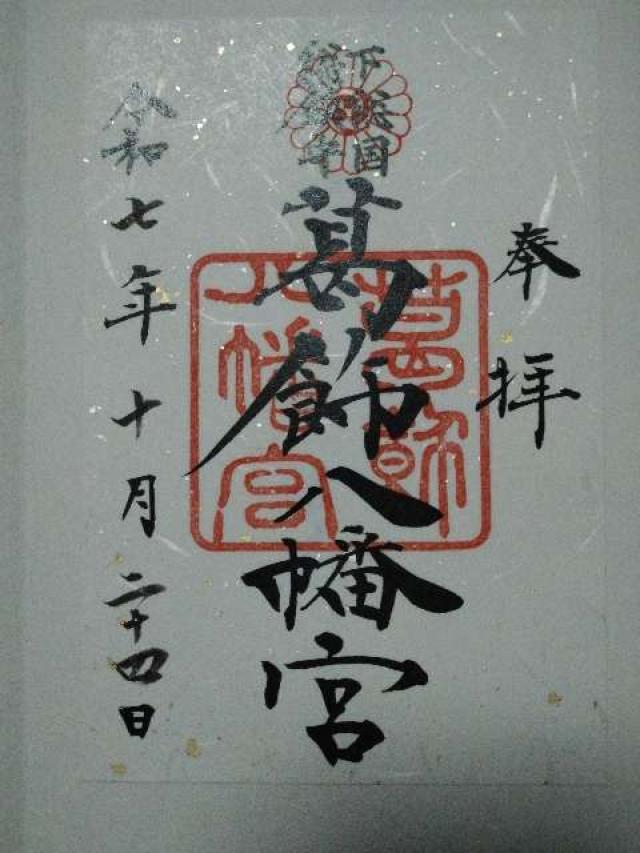 奉拝
下総国
総鎮守
葛飾八幡宮
葛飾
八幡宮
令和七年十月二十四日